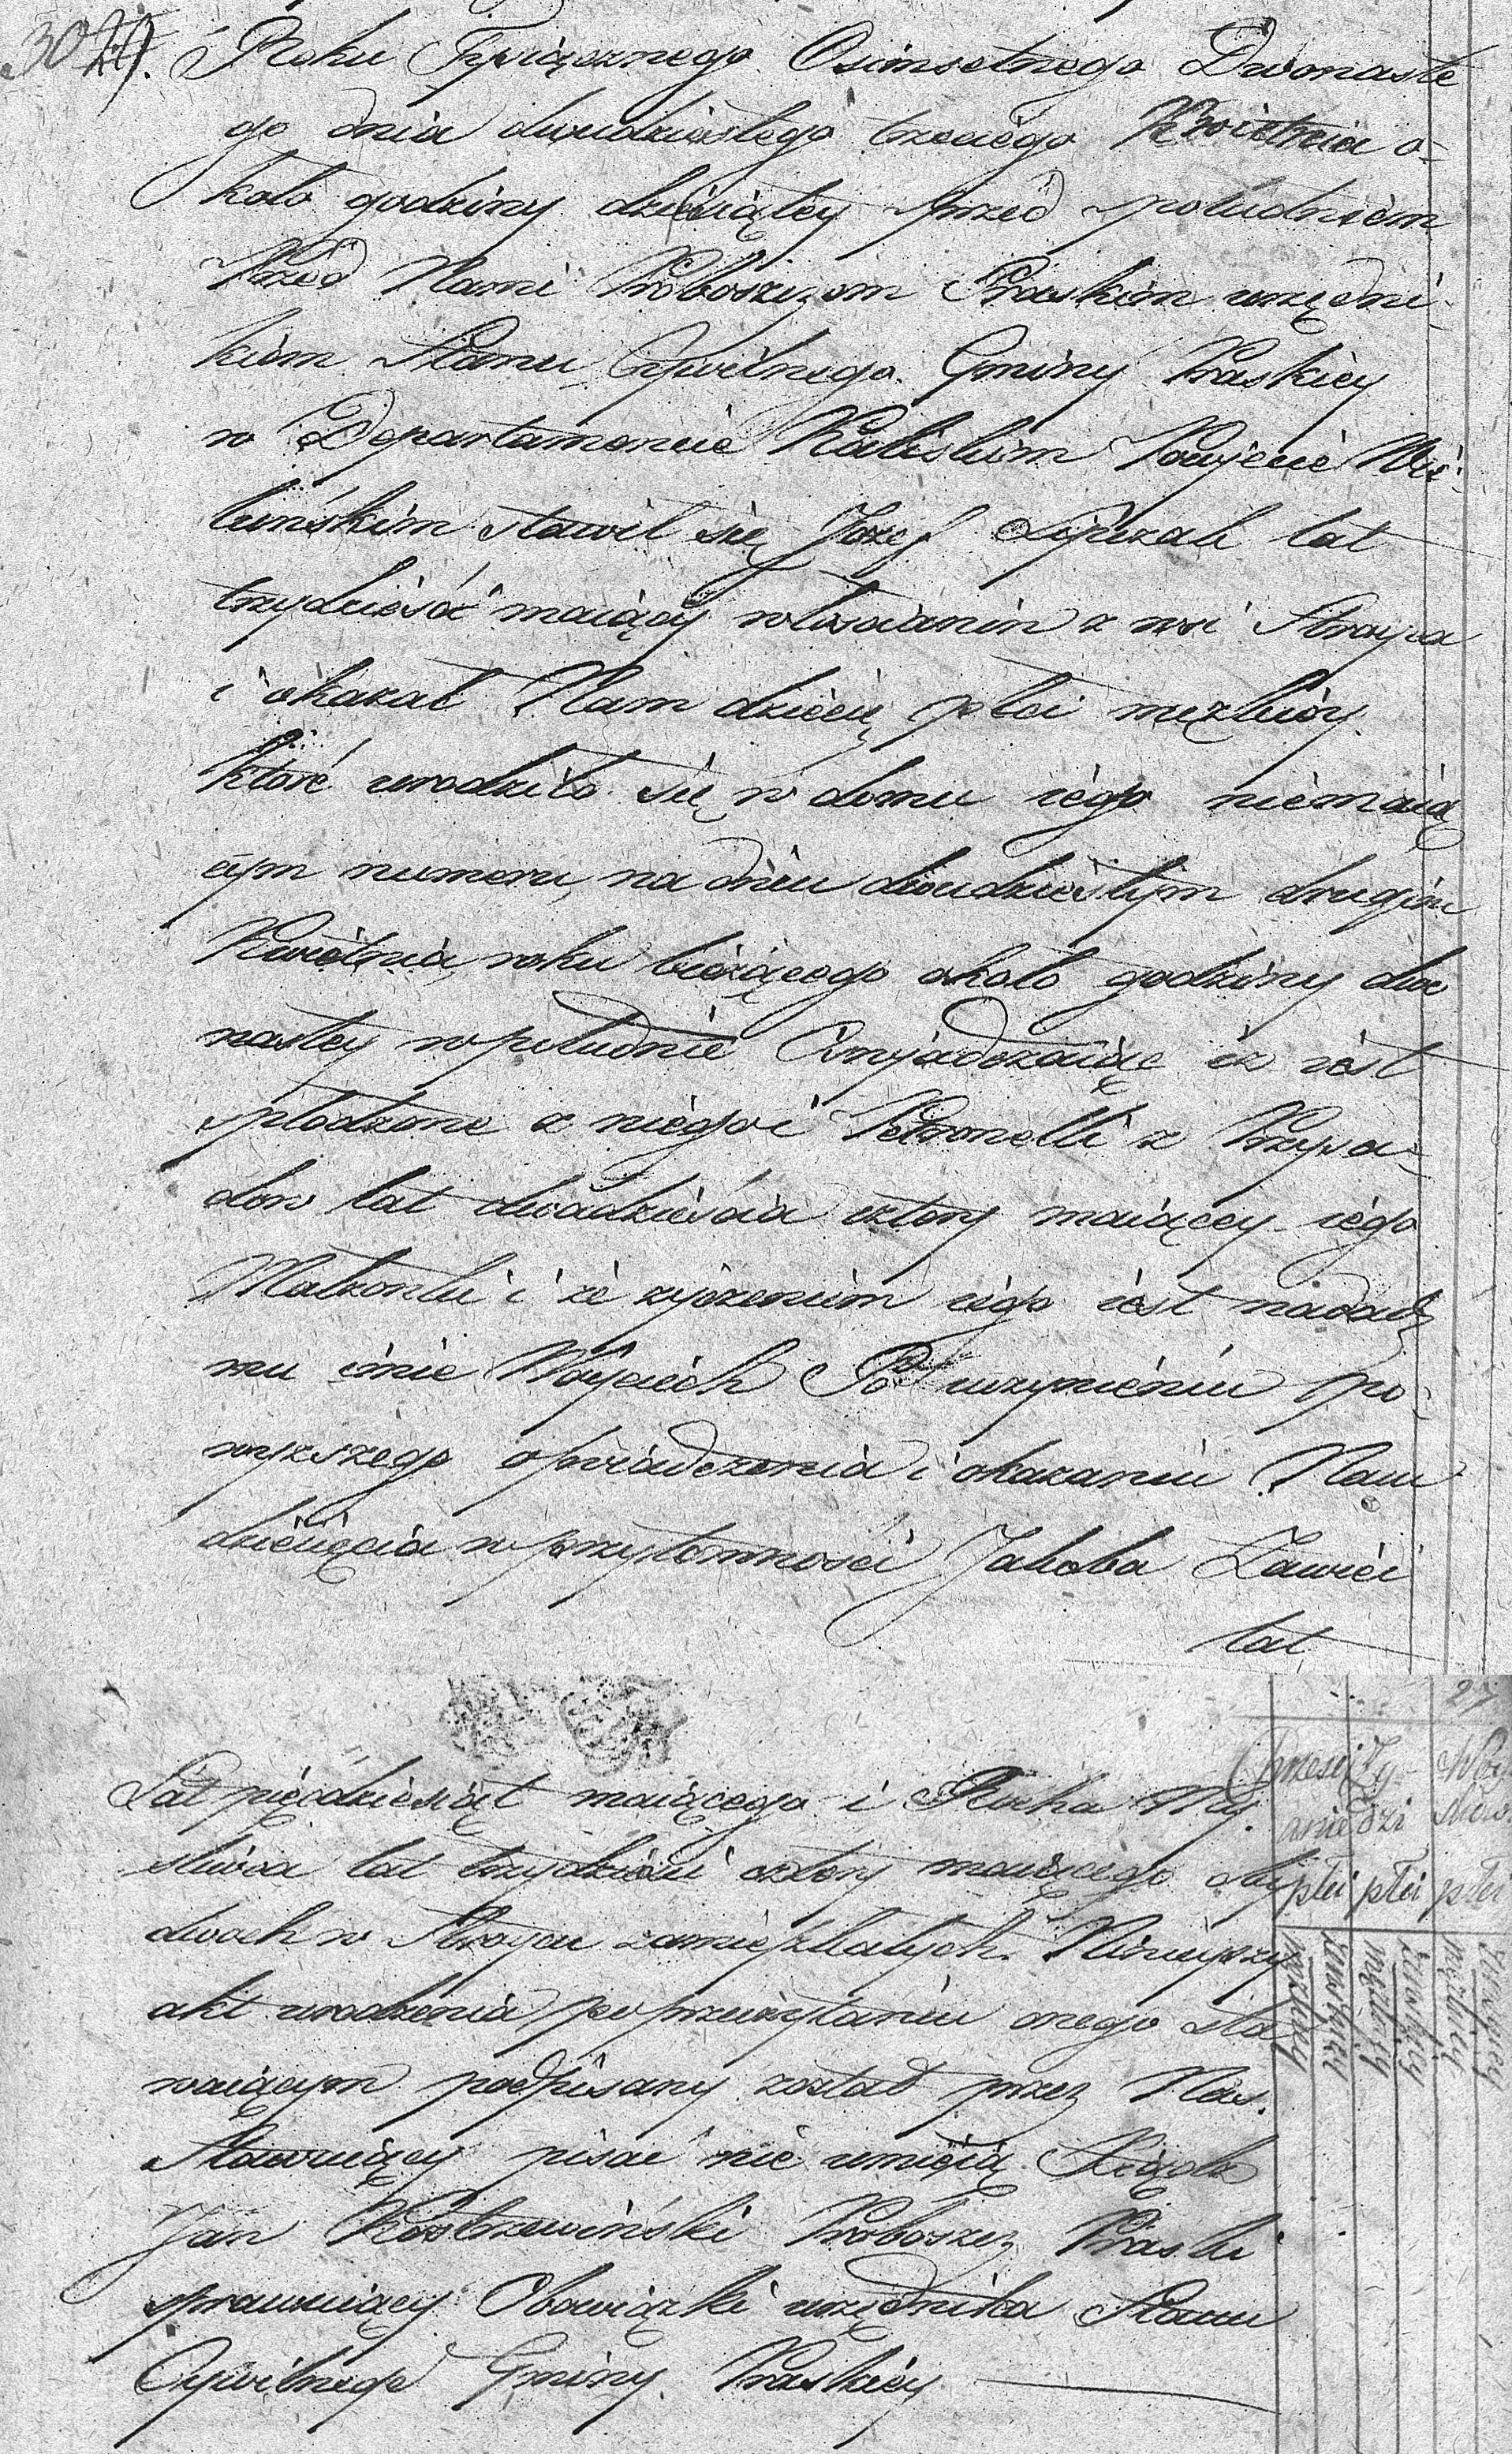 30 29. Roku Tysiącznego Osimsetnego Dwonaste
go dnia dwudziestego trzeciego Kwietnia o=
koło godziny dziesiątey przed południem
Przed Nami Proboszczom Praskim urzędni=
kiem Stanu Cywilnego Gminy Praskiey
w Departamencie Kaliskim Powjecie Wie=
luńskim stawił się Jozef lat
trzydzieści maiący włoscianin z wsi Stroyca
i okazał Nam dziecię płci męzkiey
ktoré urodziło się w domu iego niemaią
cym numeru, na dniu dwudziestym drugim
Kwietnia roku bieżącego około godziny dwu
nastey w południe Oswjadczaiąc iż iest
spłodzone z niego i Petronelli z Przywa=
dow lat dwadzieścia cztery maiącey iego
Małzonki i że zyczeniem iego iest nadadz
mu imie Woyciech Po uczynieniu po=
wyższego oświadczenia i okazaniu Nam
dziecięcia w przytomności Jakoba Zawiei
lat
Lat pięcdziesiąt maiącego i Rocha My=
sliwca lat trzydzieści cztery maiącego oby
dwoch w Stroycu zamieszkałych. Ninieyszy
akt urodzenia po przeczytaniu onego sta
waiącym podpisany został przez Nas.
Stawaiący pisać nie umieią. Xiądz
Jan Kostrzewiński Proboszcz Praski
sprawuiący Obowiązki urzędnika Stanu
Cywilnego Gminy Praskiey
27
Chrzesci Ży= Noży
anie dzi
płci płci płci
męzkiey żeńskiey męzkiey żeńskiey męzkiey żeńskiey